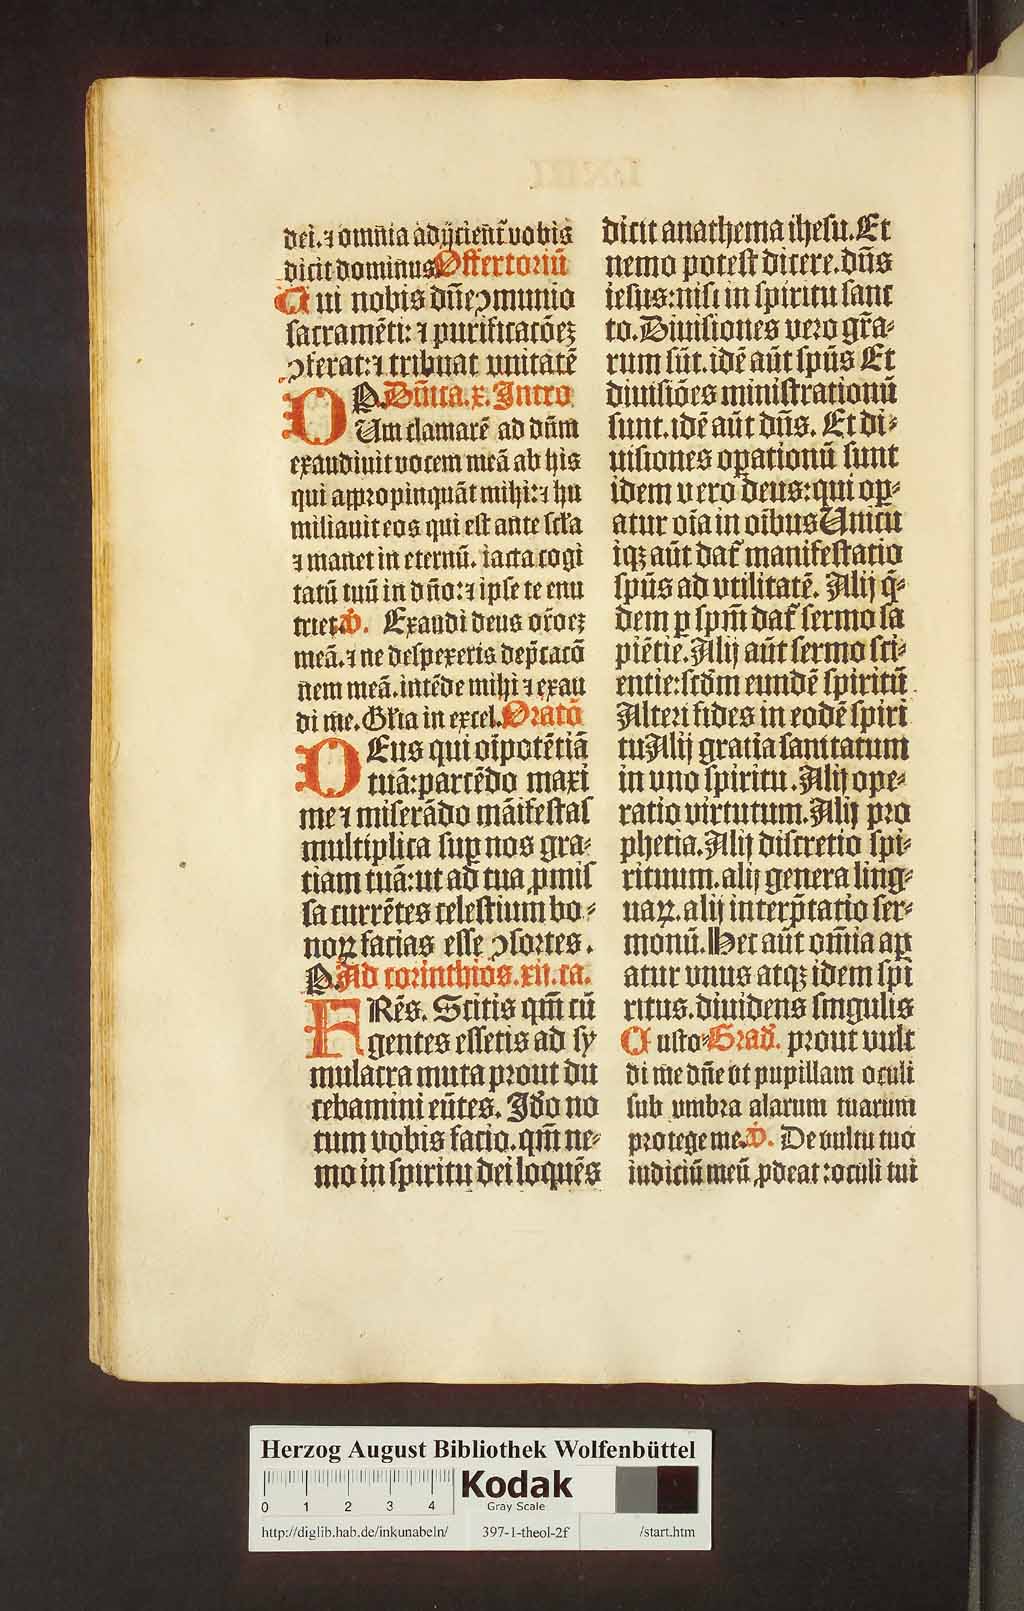 dei.⁊ omnia adijcient᷑ vobis
dicit dominus Offertoriū
Q ui nobis dn̄e ꝯmunio
sacramēti: ⁊ purificatōeꝫ
ꝯferat:⁊ tribuat vnitatē
P. Dn̄ica.x. Intro
D Um clamarē ad dn̄m
exaudiuit vocem meā ab his
qui appropinquāt mihi:⁊ hu
miliauit eos qui est ante scl̄a
⁊ manet in eternū. iacta cogi
tatū tuū in dn̄o:⁊ ipse te enu
triet. V. Exaudi deus or̄oeꝫ
meā.⁊ ne despexeris dep̄catō
nem meā.intēde mihi ⁊ exau
di me. Gl̄ia in excel. Oratō
D Eus qui oīpotētiā
tuā:parcēdo maxi
me ⁊ miserādo māifestas
multiplica suꝑ nos gra⸗
tiam tuā:ut ad tua ꝓmis
sa currētes celestium bo⸗
noꝝ facias esse ꝯsortes.
P. Ad corinthios.xii.ca.
F Rēs. Scitis qm̄ cū
gentes essetis ad sy
mulacra muta prout du
cebamini eūtes. Ido̅ no
tum vobis facio.qm̄ ne⸗
mo in spiritu dei loquēs
dicit anathema ihesu. Et
nemo potest dicere.dn̄s
iesus:nisi in spiritu sanc
to. Diuisiones vero gr̄a⸗
rum sūt.idē aūt spūs Et
diuisiōes ministrationū
sunt.idē aūt dn̄s. Et di⸗
uisiones oꝑationū sunt
idem vero deus:qui oꝑ⸗
atur oīa in oībus Unicu
iqꝫ aūt dat᷑ manifestatio
spūs ad vtilitatē. Alij q̄⸗
dem ꝑ spm̄ dat᷑ sermo sa
piētie. Alij aūt sermo sci⸗
entie:scdm̄ eundē spiritū
Alteri fides in eodē spiri
tu Alij gratia sanitatum
in vno spiritu. Alij ope⸗
ratio virtutum. Alij pro
phetia. Alij discretio spi⸗
rituum.alij genera ling⸗
uaꝝ.alij interp̄tatio ser⸗
monū. Hec aūt om̄ia aꝑ
atur vnus atqꝫ idem spi
ritus.diuidens singulis
C usto⸗ Grad̄. prout vult
di me dn̄e vt pupillam oculi
sub vmbra alarum tuarum
protege me. V. De vultu tuo
iudiciū meū ꝓdeat:oculi tui
Herzog August Bibliothek Wolfenbüttel
0 1 2 3 4
Kodak
Gray Scale
http://diglib.hab.de/inkunabeln/ 397-1-theol-2f /start.htm